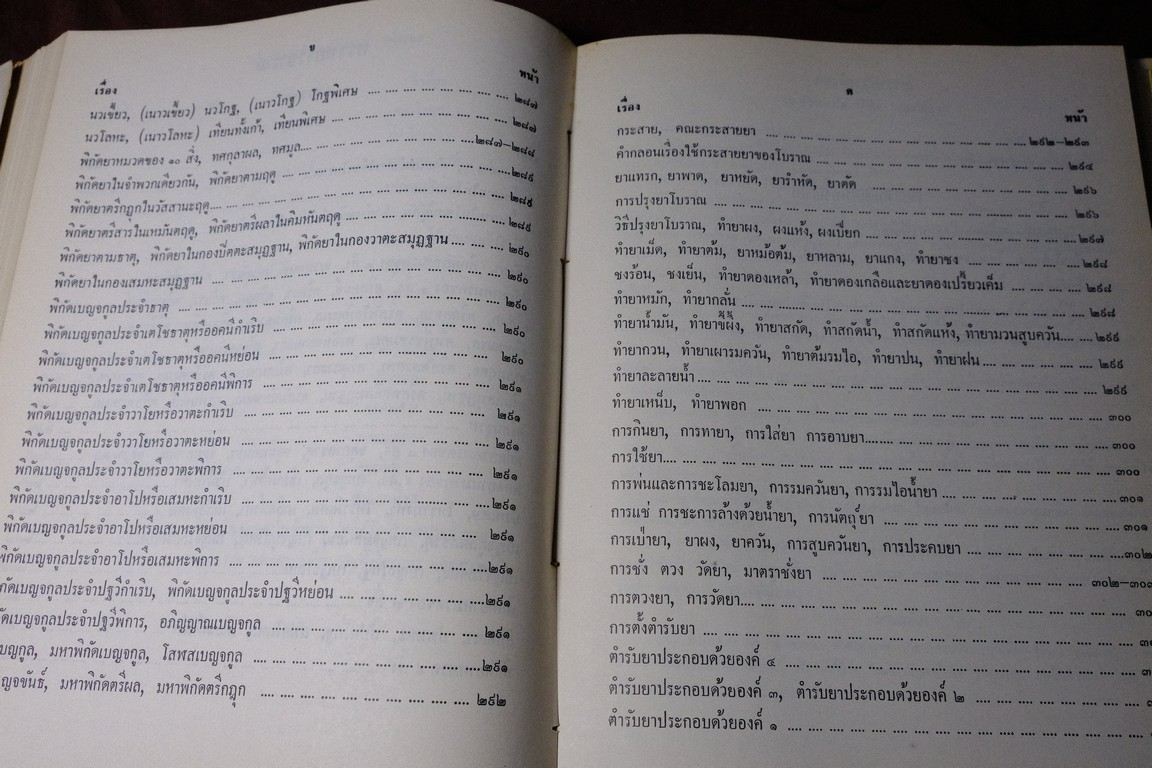 ข
เรื่อง หน้า
นวเขี้ยว, (เนาวเขี้ยว) นวโกฐ, (เนาวโกฐ) โกฐพิเศษ .... .... .... .... .... .... .... ๒๘๗
นวโลหะ, (เนาวโลหะ) เทียนทั้งเก้า, เทียนพิเศษ .... .... .... .... .... .... .... ๒๘๗
พิกัดยาหมวดของ ๑๐ สิ่ง, ทศกุลาผล, ทศมูล.... .... .... .... .... .... ....๒๘๗-๒๘๘
พิกัดยาในจำพวกเดียวกัน, พิกัดยาตามฤดู .... .... .... .... .... .... .... ๒๘๙
พิกัดยาตรีกฏุกในวัสสานะฤดู.... .... .... .... .... .... .... .... .... ๒๘๙
พิกัดยาตรีสารในเหมันตฤดู, พิกัดยาตรีผลาในคิมหันตฤดู .... .... .... .... .... ๒๘๙
พิกัดยาตามธาตุ, พิกัดยาในกองปิตตะสมุฏฐาน, พิกัดยาในกองวาตะสมุฏฐาน .... .... .... ๒๙๐
พิกัดยาในกองเสมหะสมุฏฐาน .... .... .... .... .... .... .... .... ๒๙๐
พิกัดเบญจกูลประจำธาตุ .... .... .... .... .... .... .... .... .... ๒๙๐
พิกัดเบญจกูลประจำเตโชธาตุหรืออคนีกำเริบ .... .... .... .... .... .... .... ๒๙๐
พิกัดเบญจกูลประจำเตโชธาตุหรืออคนีหย่อน .... .... .... .... .... .... .... ๒๙๐
พิกัดเบญจกูลประจำเตโชธาตุหรืออคนีพิการ .... .... .... .... .... .... .... ๒๙๑
พิกัดเบญจกูลประจำวาโยหรือวาตะกำเริบ .... .... .... .... .... .... .... ๒๙๑
พิกัดเบญจกูลประจำวาโยหรือวาตะหย่อน .... .... .... .... .... .... .... ๒๙๑
พิกัดเบญจกูลประจำวาโยหรือวาตะพิการ .... .... .... .... .... .... .... ๒๙๑
พิกัดเบญจกูลประจำอาโปหรือเสมหะกำเริบ .... .... .... .... .... .... .... ๒๙๑
พิกัดเบญจกูลประจำอาโปหรือเสมหะหย่อน .... .... .... .... .... .... .... ๒๙๑
พิกัดเบญจกูลประจำอาโปหรือเสมหะพิการ .... .... .... .... .... .... .... ๒๙๑
กัดเบญจกูลประจำปฐวีกำเริบ, พิกัดเบญจกูลประจำปฐวีหย่อน .... .... .... .... ....๒๙๑
ัดเบญจกูลประจำปฐวีพิการ, อภิญญาณเบญจกูล .... .... .... .... .... .... .... ๒๙๑
บญกูล, มหาพิกัดเบญจกูล, โสฬสเบญจกูล .... .... .... .... .... .... .... ....๒๙๑
ญจขันธ์, มหาพิกัดตรีผล, มหาพิกัดตรีกฏุก .... .... .... .... .... .... .... ๒๙๒
ค
เรื่อง หน้า
กระสาย, คณะกระสายยา .... .... .... .... .... .... .... .... ....๒๙๒-๒๙๓
คำกลอนเรื่องใช้กระสายยาของโบราณ .... .... .... .... .... .... .... .... ๒๙๔
ยาแทรก, ยาพาด, ยาหยัด, ยารำหัด, ยาตัด .... .... .... .... .... .... ๒๙๖
การปรุงยาโบราณ .... .... .... .... .... .... .... .... .... .... ๒๙๖
วิธีปรุงยาโบราณ, ทำยาผง, ผงแห้ง, ผงเปียก .... .... .... .... .... .... ๒๙๗
ทำยาเม็ด, ทำยาต้ม, ยาหม้อต้ม, ยาหลาม, ยาแกง, ทำยาชง .... .... .... .... ....๒๙๘
ชงร้อน, ชงเย็น, ทำยาดองเหล้า, ทำยาดองเกลือและยาดองเปรี้ยวเค็ม .... .... .... .... ๒๙๘
ทำยาหมัก, ทำยากลั่น .... .... .... .... .... .... .... .... .... ๒๙๘
ทำยาน้ำมัน, ทำยาขี้ผึ้ง, ทำยาสกัด, ทำสกัดน้ำ, ทำสกัดแห้ง, ทำยามวนสูบควัน.... .... ๒๙๙
ทำยากวน, ทำยาเผารมควัน, ทำยาต้มรมไอ, ทำยาปน, ทำยาฝน.... .... .... .... .... ๒๙๙
ทำยาละลายน้ำ.... .... .... .... .... .... .... .... .... .... ๒๙๙
ทำยาเหน็บ, ทำยาพอก .... .... .... .... .... .... .... .... .... ๓๐๐
การกินยา, การทายา, การใส่ยา การอาบยา.... .... .... .... .... .... .... ๓๐๐
การใช้ยา.... .... .... .... .... .... .... .... .... .... .... ๓๐๐
การพ่นและการชะโลมยา, การรมควันยา, การรมไอน้ำยา .... .... .... .... .... .... ๓๐๑
การแช่ การชะการล้างด้วยน้ำยา, การนัตถุ์ยา .... .... .... .... .... .... .... ๓๐๑
การเป่ายา, ยาผง, ยาควัน, การสูบควันยา, การประคบยา .... .... .... .... .... ....๓๐๒
การชั่ง ตวง วัดยา, มาตราชั่งยา .... .... .... .... .... .... .... .... ๓๐๒-๓๐๓
การตวงยา, การวัดยา.... .... .... .... .... .... .... .... .... .... ๓๐
การตั้งตำรับยา .... .... .... .... .... .... .... .... .... .... ๓๐
ตำรับยาประกอบด้วยองค์ ๔ .... .... .... .... .... .... .... .... .... ๓
ตำรับยาประกอบด้วยองค์ ๓, ตำรับยาประกอบด้วยองค์ ๒ .... .... .... .... ....
ตำรับยาประกอบด้วยองค์ ๑ .... .... .... .... .... .... .... .... ....